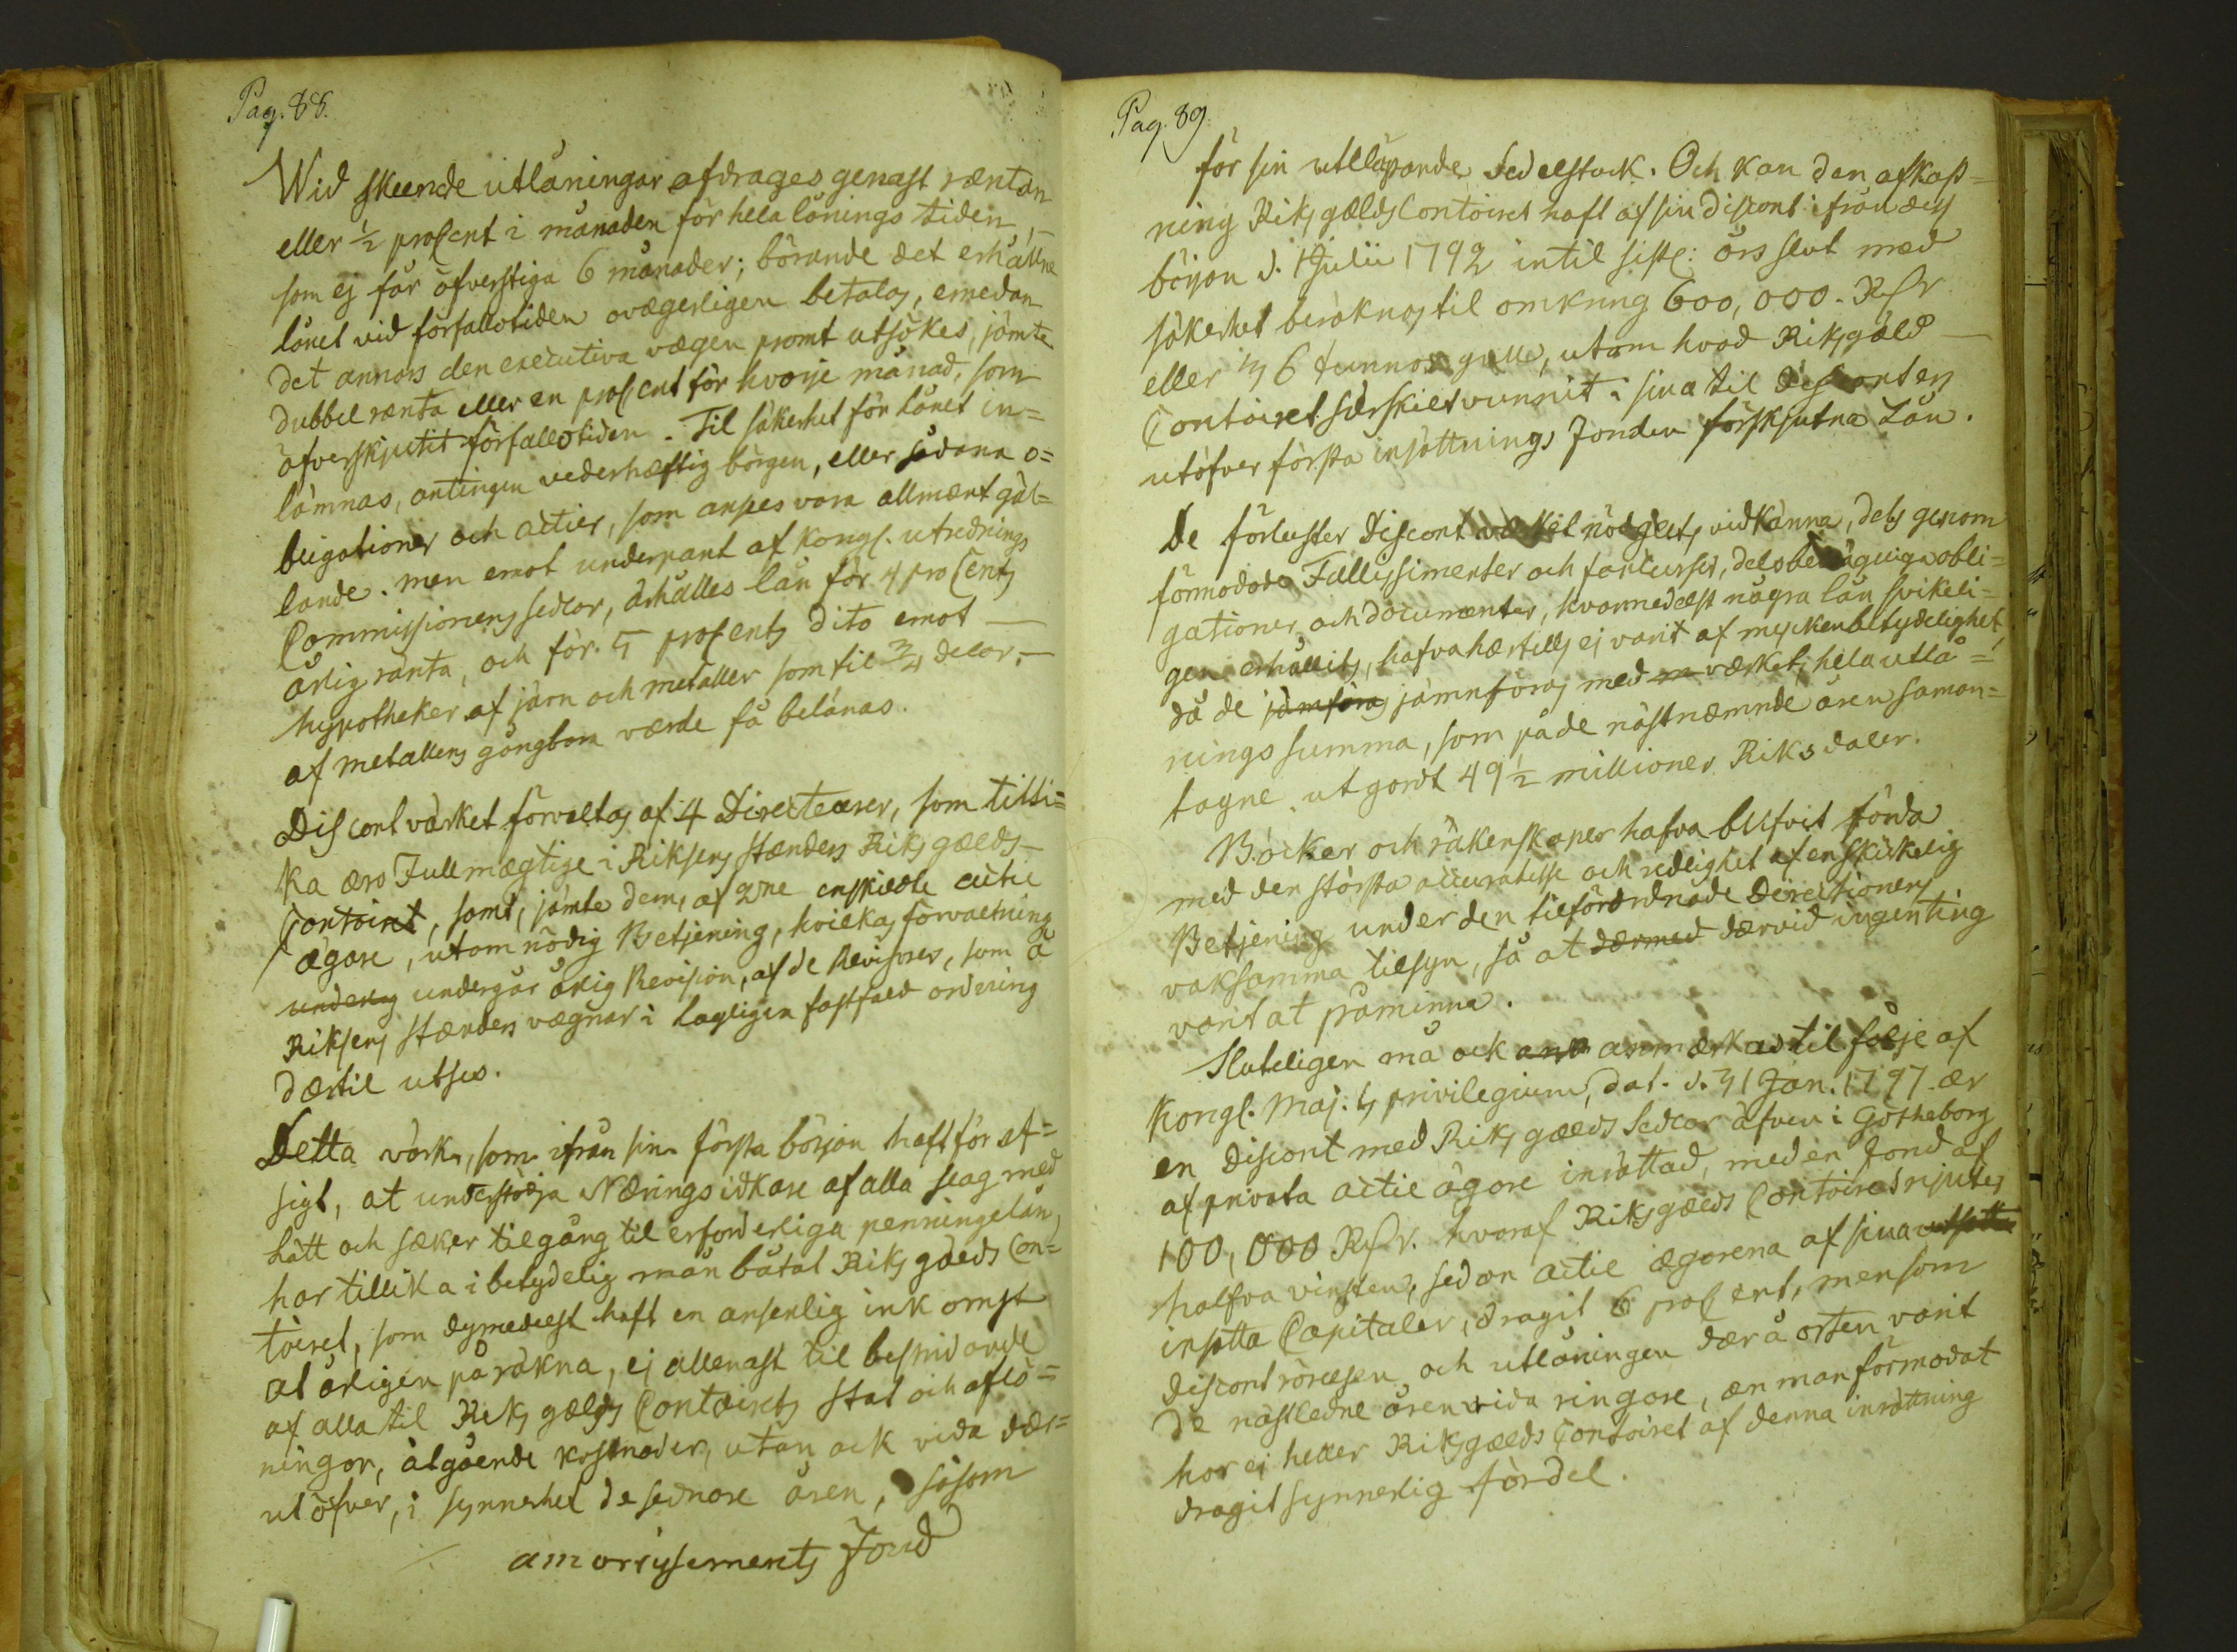 Pag. 88.
Wid skeende utlåningar afdrages genast räntan
eller ½ proCent i månaden för hela lånings tiden,
som ej får öfverstiga 6 månader; börande det erhållne
lånet vid förfallotiden ovägerligen betalas, emedan
det annars den executiva vägen promt utsökes, jämte
dubbel ränta eller en proCent för hvarje månad, som
öfverskjutit förfallotiden. Til säkerhet för lånet in=
lämnas, antingen vederhæftig borgen, eller sådana o=
bligationer och actier, som anses vara allmænt gäl=
lande. men emot underpant af Kongl. utrednings
Commissionens sedlar, ärhålles lån för 4 proCents
årlig ränta, och för 5 proCents dito emot
hypotheker af järn och metaller som til ¾ delar,
af metallens gångbara værde få belånas.
Discont värket förvaltas af 4 Directeurer, som tilli=
ka æro Fullmægtige i Riksens Stænders Riksgælds
Contoiret, samt, jämte dem, af 2ne enskildte actie
ägare, utom nödig Betjening, hvilkas förvaltning
underg undergår årlig Revision, af de Revisorer, som å
Riksens Stænders vægnar i lagligen fastställd ordning
dærtil utses.
Detta värk, som ifrån sin första början haft för af=
sigt, at understödja Næringsidkare af alla slag med
lätt och sæker tilgång til erforderliga penningelån,
har tillika i betydelig mån båtat Riksgælds Con=
toiret, som dymedelst haft en ansenlig inkomst
at årligen påräkna, ej allenast til bestridande
af alla til Riksgælds Contoirets stat och aflö=
ningar, åtgående kostnader, utan ock vida dær=
utöfver, i synnerhet de sednare åren, såsom
amortissements Fond
Pag. 89
för sin utelöpande Sedelstock. Och kan den afkast=
ning Riksgælds Contoiret haft af sin discont ifrån dess
början d. 1 Julii 1792 intil sistl: års slut med
säkerhet beräknas til omkring 600,000. RSr
eller 6 tunnor guld, utom hvad Riksgæld
Contoiret særskilt vunnit i sina til Disconten
utöfver första insättnings Fonden förskjutna Lån.
De förluster Discont værket nödgats vidkänna, dels genom
förmodade Fallissimenter och Concurser, dels obli=
gationer och documenter, hvarmedelst några lån svikeli=
gen erhållits, hafva hærtills ej varit af mycken betydelighet
då de jämföras jämnföras med værkets hela utlå=
nings summa, som på de næstnæmnde åren saman=
tagne utgordt 49½ millioner Riksdaler.
Böcker och räkenskaper hafva blifvit förda
med den största accuratesse och redlighet af en skickelig
Betjening under den tilförordnade Directionens
vaksamma tilsyn, så at dærmed dærvid ingenting
varit at påminna.
Sluteligen må ock anmærkas til följe af
Kongl. Maj:ts privilegium, dat. d. 31 Jan. 1797. ær
en discont med Riksgælds Sedlar äfven i Götheborg
af privata actie ägare inrättad, med en Fond af
100,000 RSr. hvaraf Riksgælds Contoiret njuter
halfva vinsten, sedan actie ægarena af sina utsatta
insatta Capitaler, dragit 6 proCent, men som
discont rörelsen och utlåningen dær å orten varit
de næstledne åren vida ringare, æn man förmodat
har ej heller Riksgælds Contoiret af denna inrättning
dragit synnerlig fördel.